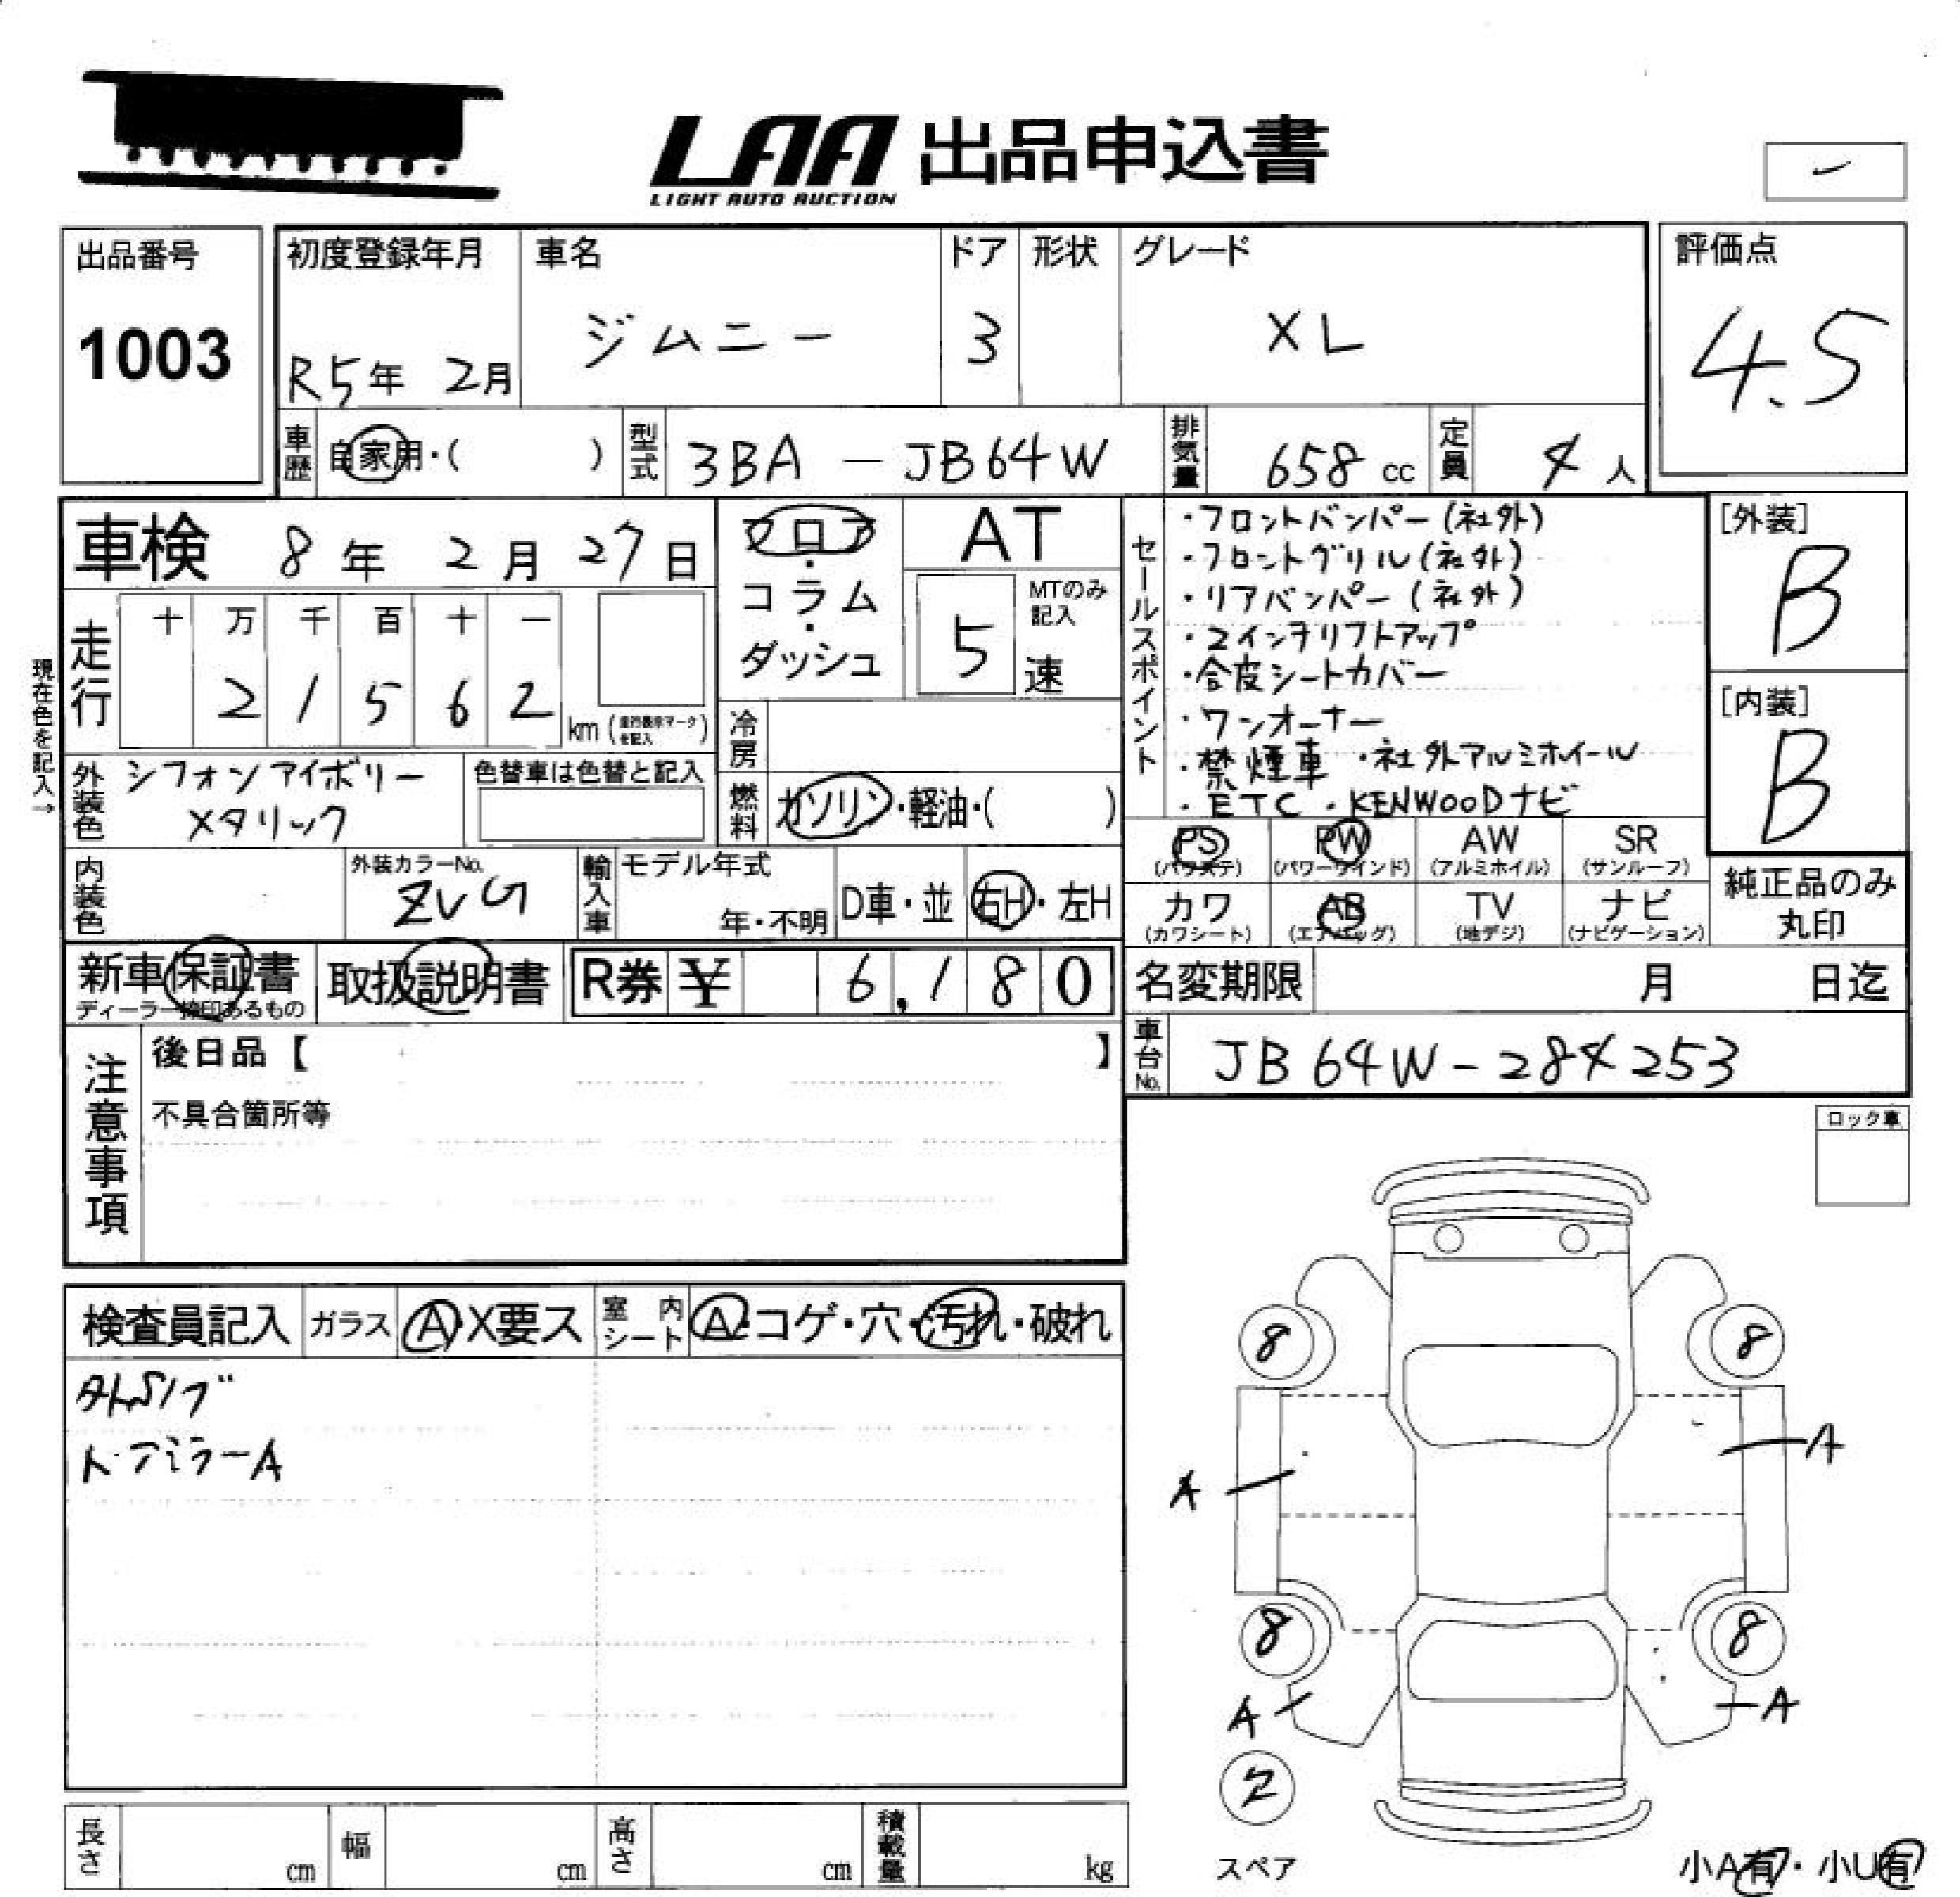 LAA 出品申込書
LIGHT AUTO AUCTION
出品番号
1003
初度登録年月
R5年 2月
車名
ジムニー
ドア
3
形状
グレード
XL
評価点
4.5
車歴
自家用・( )
型式
3BA - JB64W
排気量
658 cc
定員
4 人
車検 8年 2月 27日
フロア
・
コラム
・
ダッシュ
AT
5
MTのみ
記入
速
現在色を記入→
走行
十 万 千 百 十 一
2 1 5 6 2
km (走行表示マークを記入)
冷房
燃料
ガソリン・軽油・( )
外装色
シフォンアイボリー
メタリック
色替車は色替と記入
内装色
外装カラーNo.
ZVG
輸入車
モデル年式
年・不明
D車・並
右H・左H
セールスポイント
・フロントバンパー(社外)
・フロントグリル(社外)
・リアバンパー(社外)
・2インチリフトアップ
・合皮シートカバー
・ワンオーナー
・禁煙車 ・社外アルミホイール
・ETC ・KENWOODナビ
[外装]
B
[内装]
B
PS
(パワステ)
PW
(パワーウインド)
AW
(アルミホイル)
SR
(サンルーフ)
カワ
(カワシート)
AB
(エアバッグ)
TV
(地デジ)
ナビ
(ナビゲーション)
純正品のみ
丸印
新車保証書
ディーラー捺印あるもの
取扱説明書
R券 ¥ 6,180
名変期限 月 日迄
車台No.
JB64W-284253
注意事項
後日品【 】
不具合箇所等
ロック車
検査員記入
ガラス
A・X要ス
室内シート
A・コゲ・穴・汚れ・破れ
ドアミラーA
8
8
A
A
8
8
A
A
2
スペア
小A有・小U有
長さ cm
幅 cm
高さ cm
積載量 kg